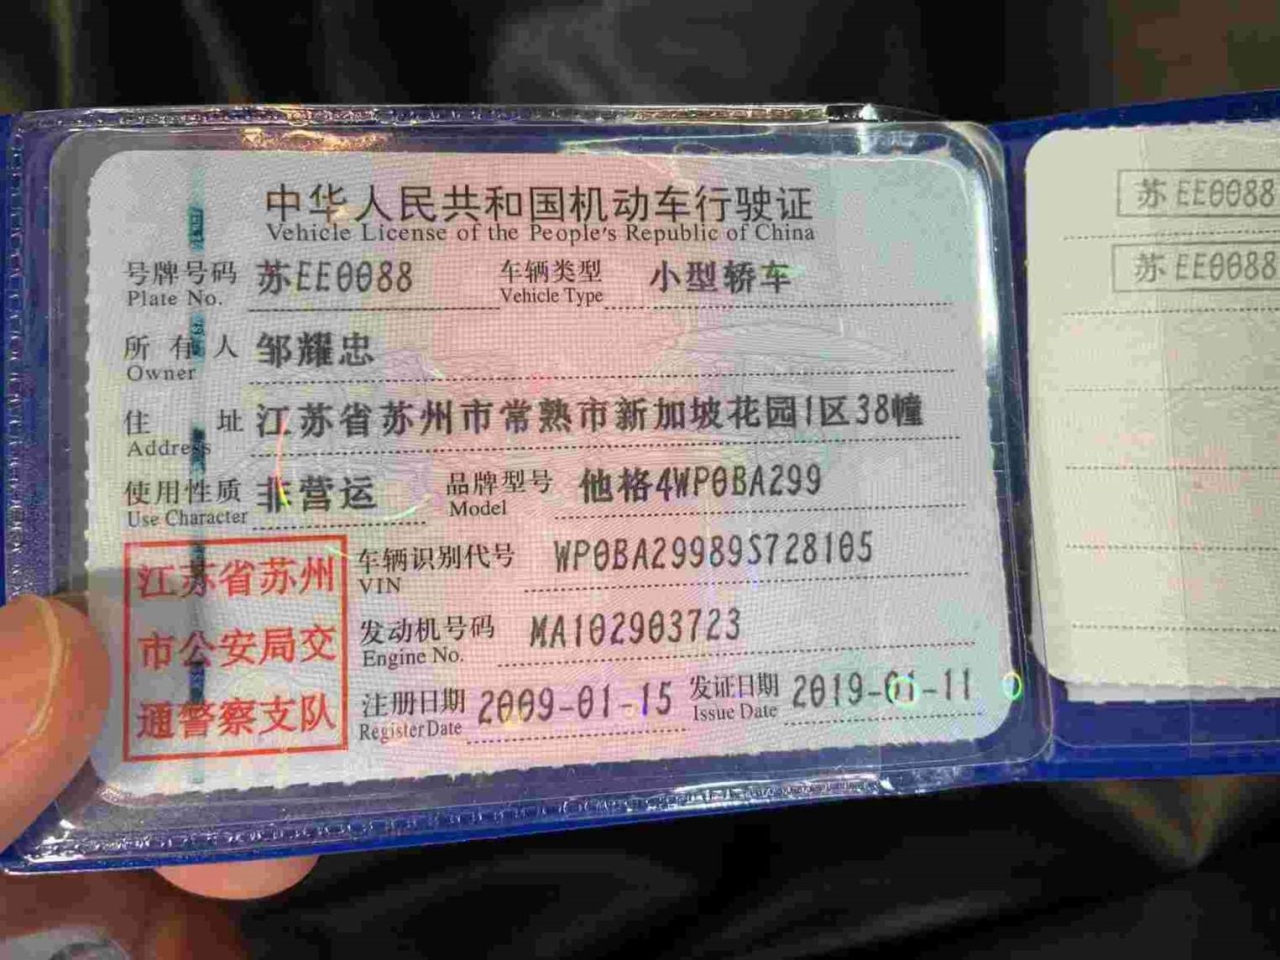 中华人民共和国机动车行驶证
Vehicle License of the People's Republic of China
号牌号码 苏EE0088 车辆类型 小型轿车
Plate No. Vehicle Type
所有人 邹耀忠
Owner
住址 江苏省苏州市常熟市新加坡花园1区38幢
Address
使用性质 非营运 品牌型号 他格4WP0BA299
Use Character Model
江苏省苏州
市公安局交
通警察支队
车辆识别代号 WP0BA29989S728105
VIN
发动机号码 MA102903723
Engine No.
注册日期 2009-01-15 发证日期 2019-01-11
Register Date Issue Date
苏EE0088
苏EE0088